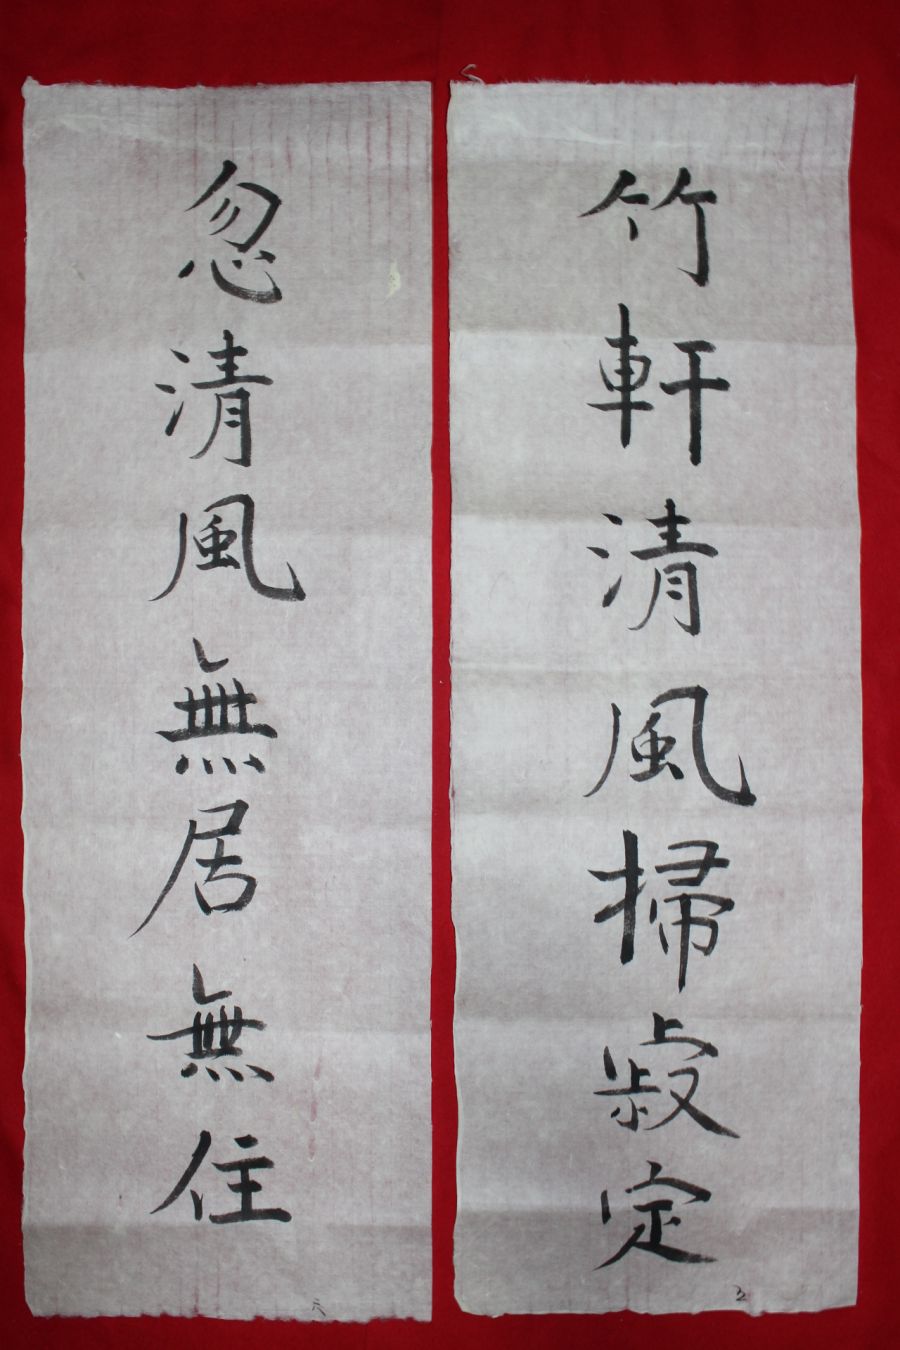 竹軒清風掃寂定
忽清風無居無住
六